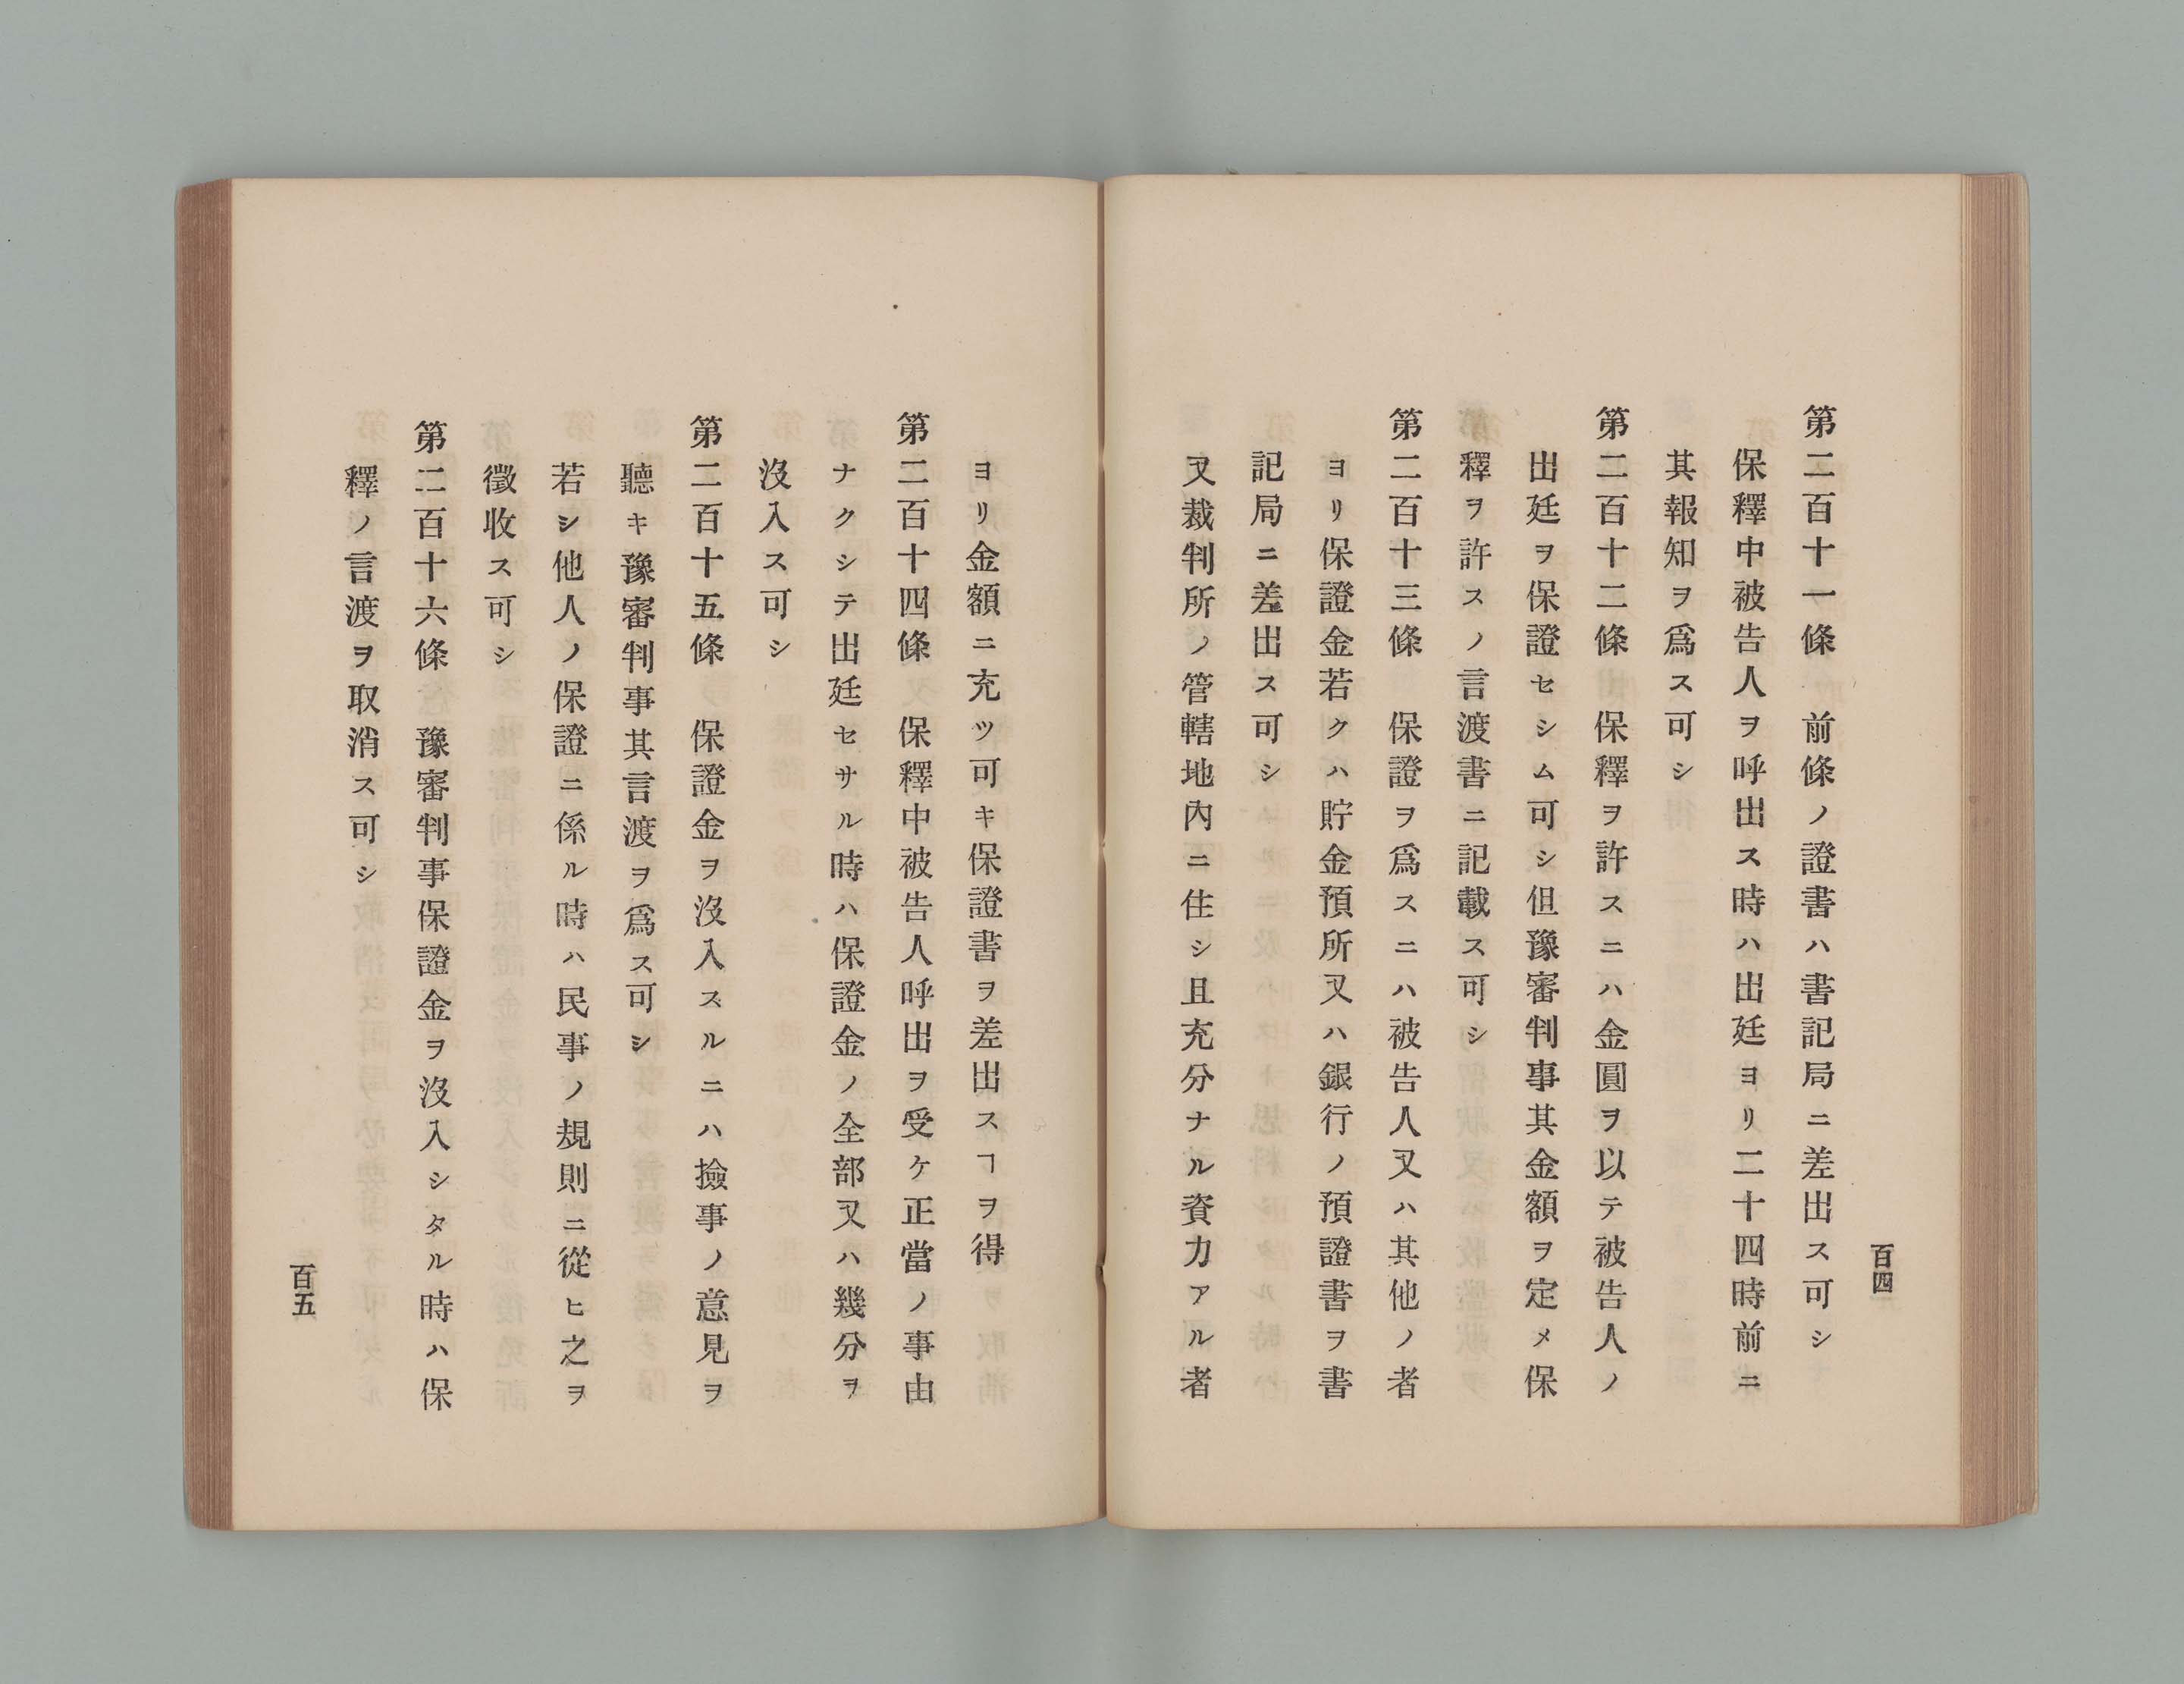 第二百十一條　前條ノ證書ハ書記局ニ差出ス可シ
保釋中被告人ヲ呼出ス時ハ出廷ヨリ二十四時前ニ
其報知ヲ爲ス可シ
第二百十二條　保釋ヲ許スニハ金圓ヲ以テ被告人ノ
出廷ヲ保證セシム可シ但豫審判事其金額ヲ定メ保
釋ヲ許スノ言渡書ニ記載ス可シ
第二百十三條　保證ヲ爲スニハ被告人又ハ其他ノ者
ヨリ保證金若クハ貯金預所又ハ銀行ノ預證書ヲ書
記局ニ差出ス可シ
又裁判所ノ管轄地內ニ住シ且充分ナル資力アル者
百四
ヨリ金額ニ充ツ可キ保證書ヲ差出スヿヲ得
第二百十四條　保釋中被告人呼出ヲ受ケ正當ノ事由
ナクシテ出廷セサル時ハ保證金ノ全部又ハ幾分ヲ
沒入ス可シ
第二百十五條　保證金ヲ沒入スルニハ撿事ノ意見ヲ
聽キ豫審判事其言渡ヲ爲ス可シ
若シ他人ノ保證ニ係ル時ハ民事ノ規則ニ從ヒ之ヲ
徵收ス可シ
第二百十六條　豫審判事保證金ヲ沒入シタル時ハ保
釋ノ言渡ヲ取消ス可シ
百五